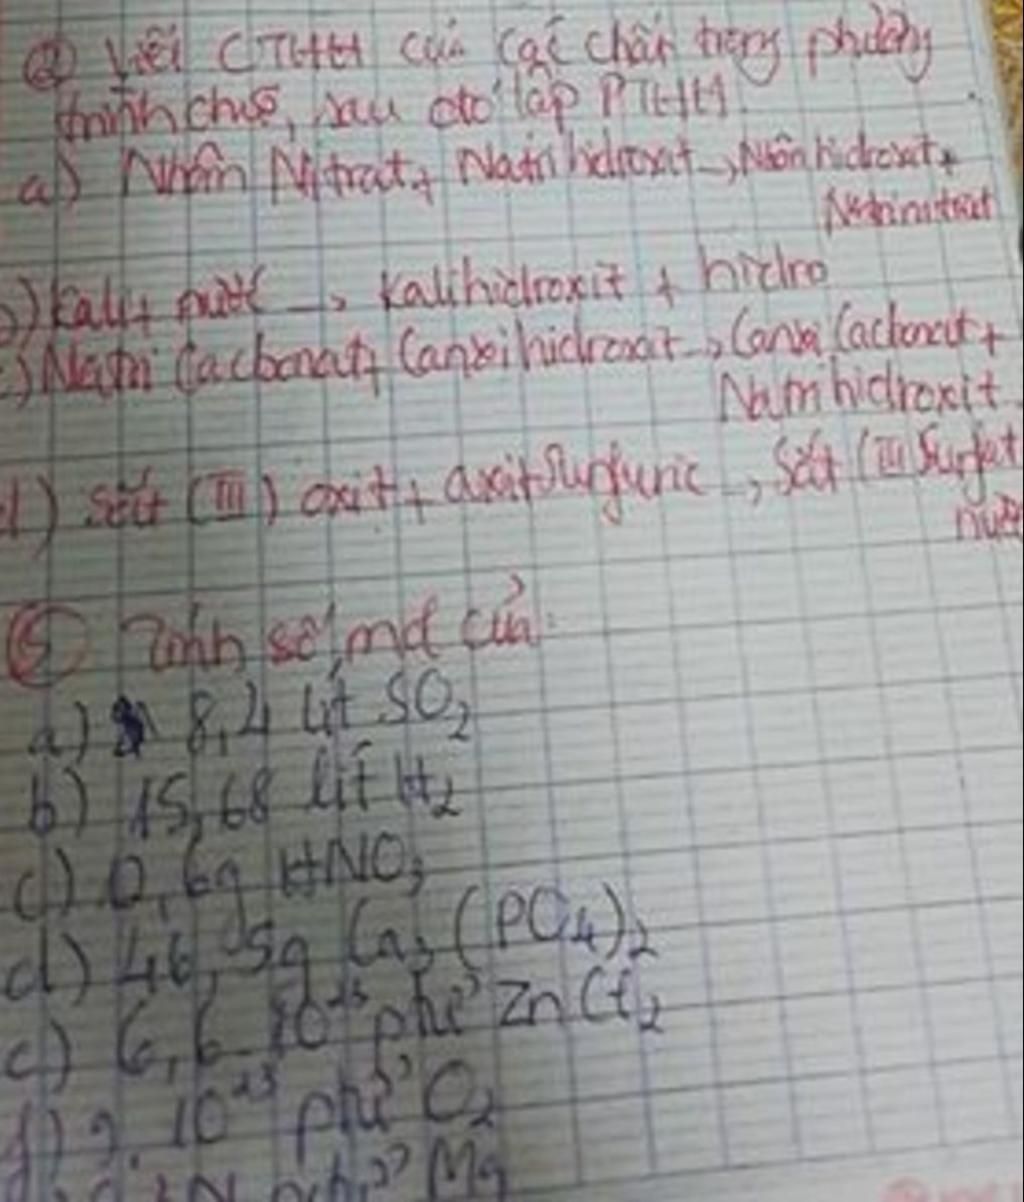 ② Viết CTHH của các chất trong phương
trình chữ, sau đó lập PTHH
a) Nhôm Nitrat + Natri hidroxit → Nhôm hidroxit +
Natri nitrat
b) Kali + nước → Kali hidroxit + hidro
c) Natri Cacbonat + Canxi hidroxit → Canxi Cacbonat +
Natri hidroxit
d) Sắt (III) oxit + axit Surfuric → Sắt (III Surfat
nước
⑤ Tính số mol của:
a) 8,4 lít SO2
b) 15,68 lít H2
c) 0,6g HNO3
d) 46,5g Ca3(PO4)2
6,6.10²³ phtử ZnCl2
10²³ phtử O2
Mg